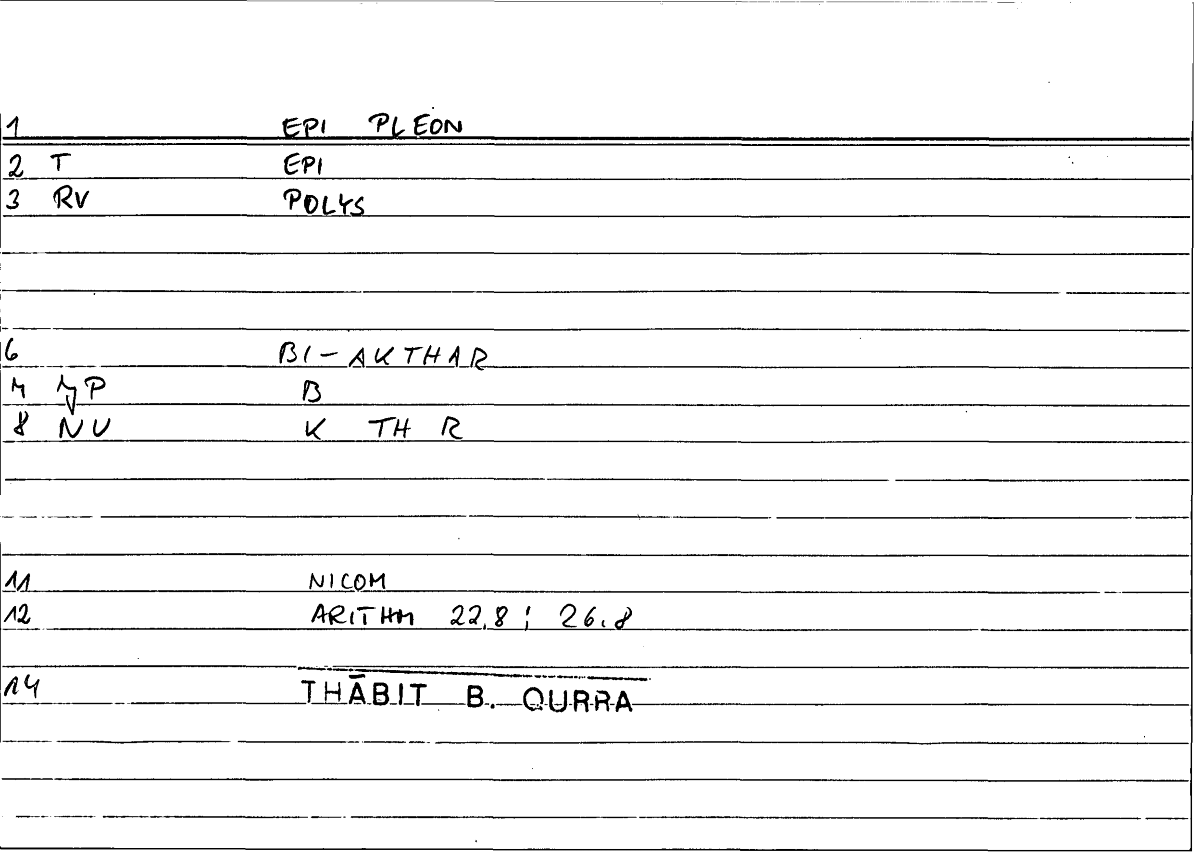 1 EPI PLEON
2 T EPI
3 RV POLYS
6 BI-AKTHAR
P B
8 NV K TH R
11 NICOM
12 ARITHM 22.8 ; 26.8
14 THĀBIT B. QURRA